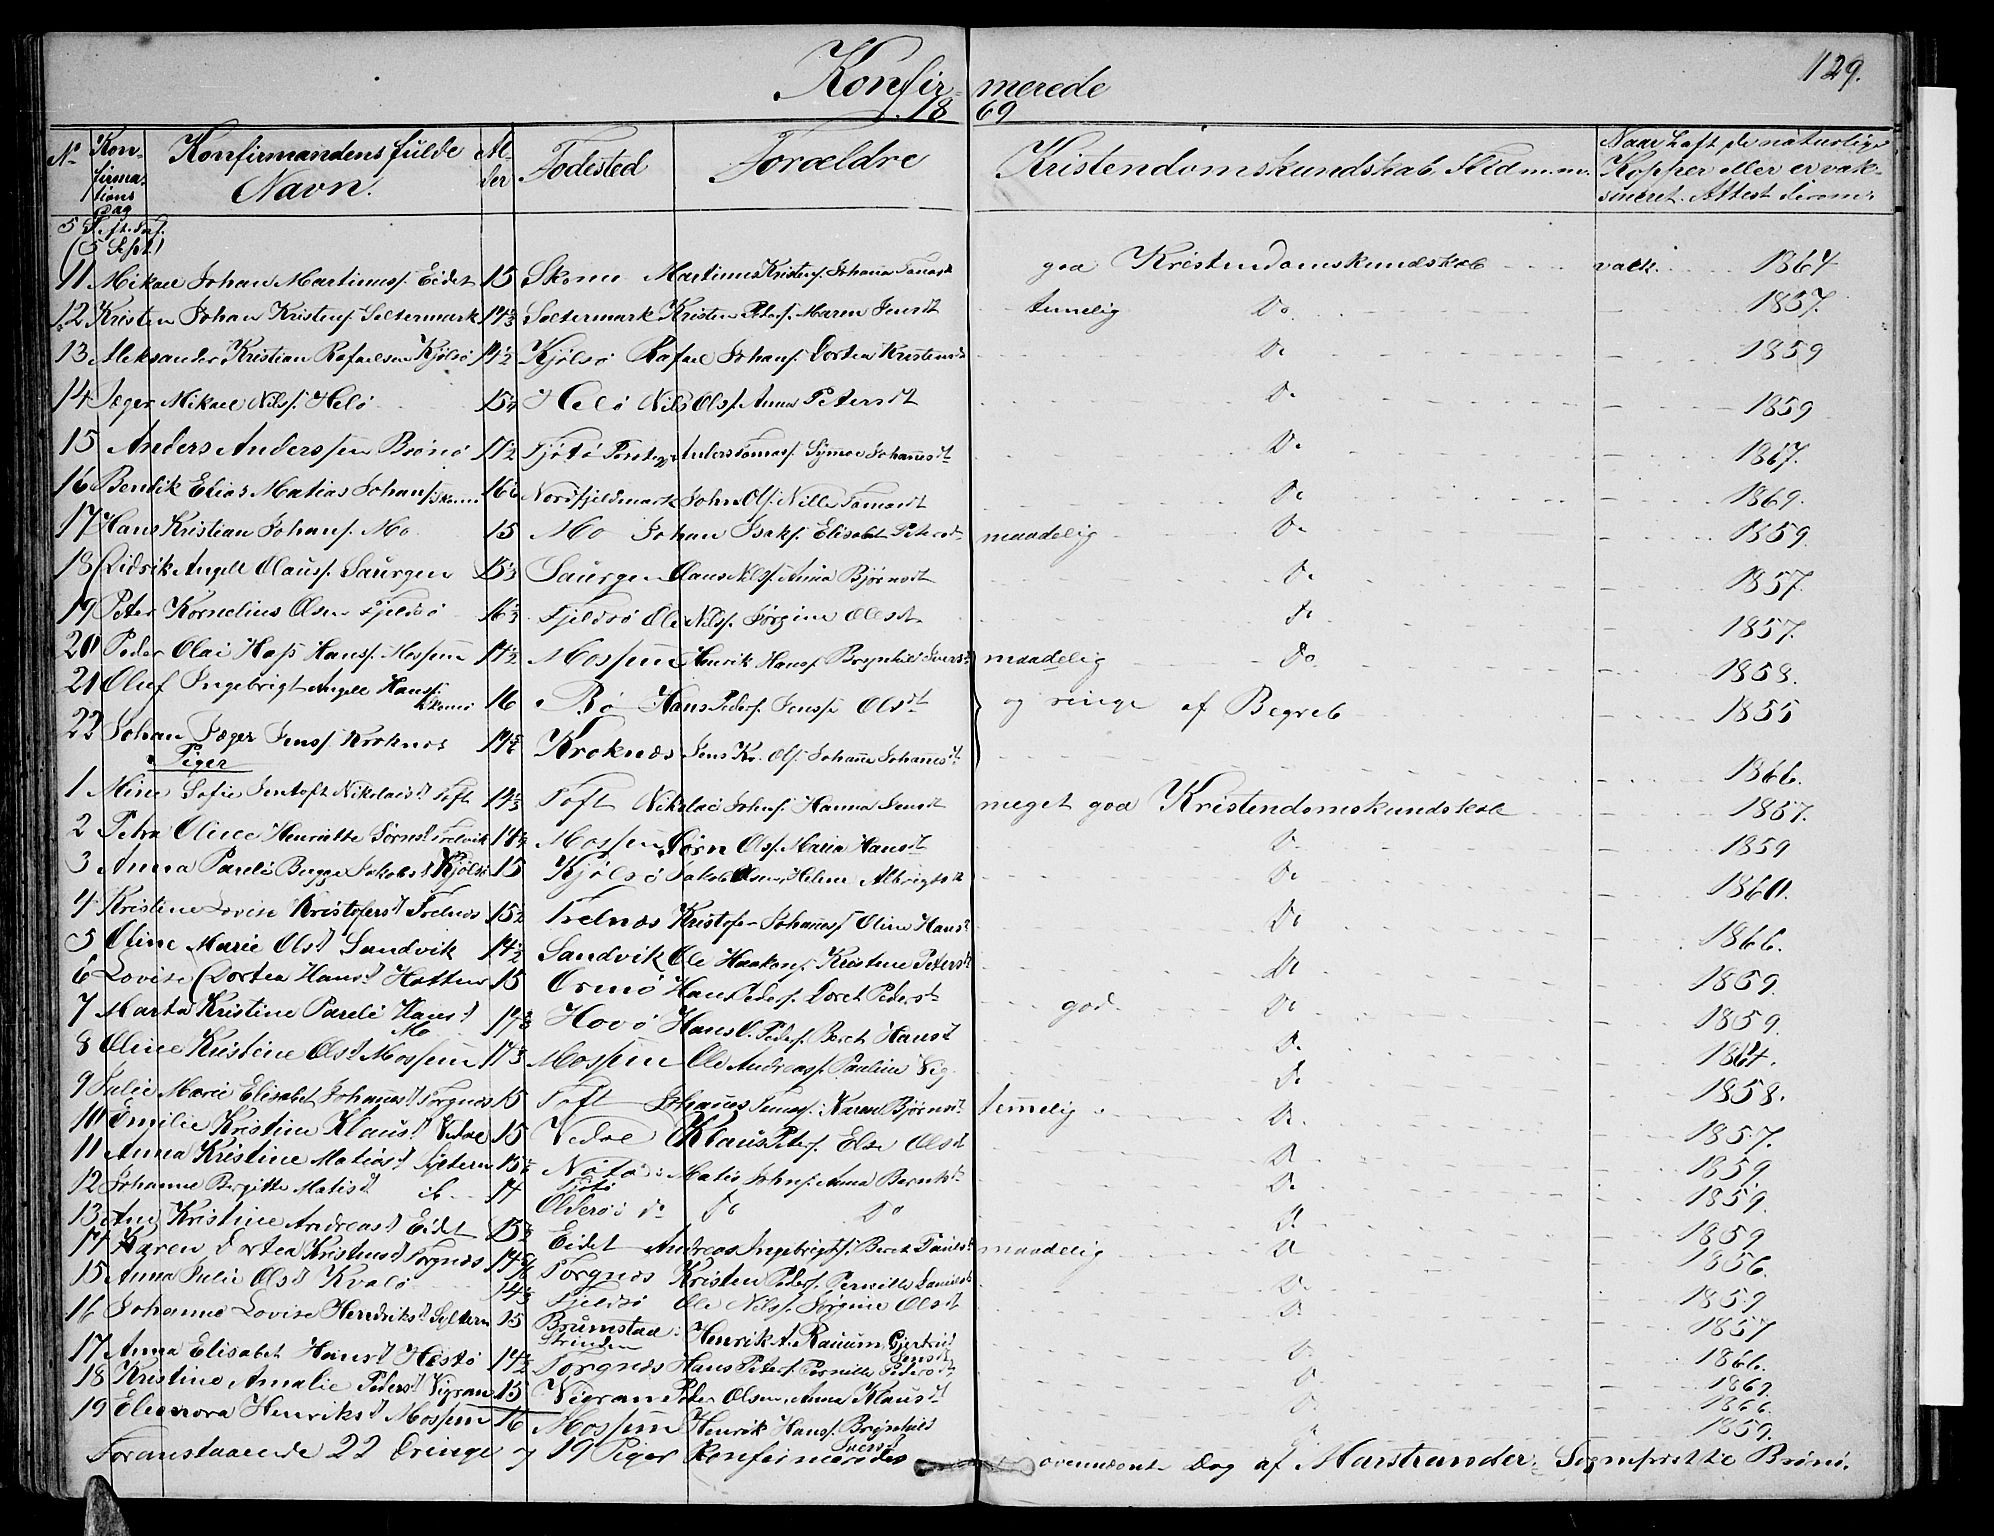 129.
Konfirmerede
1869
No Konfirmations Dag Konfirmandens fulde Navn. Alder Fødested Forældre Kristendomskundskab, Flid m.m. Naar haft de naturlige Kopper eller er vaksineret. Attest derom.
(5 Sept)
11 Mikael Johan Martinuss. Eidet 15 Martinus Kristens. god Kristendomskundskab vack. 1864
12 Kristen Johan Kristens. Seltermark Seltermark Kristen Peders. Maren Jensdt temelig Do. 1857.
13 Aleksander Kristian Rafaelsen Kjølsø 14½ Kjølsø Rafael Johans. Dortea Kristensd Do 1859
14 Jæger Mikael Nils. Helø Helø Nils Ols. Anna Petersdt Do 1859
15 Anders Anderssen Brønø Tjøtø Anders Tomas. Johannesdt Do 1867.
16 Bendik Elias Matias Johans. Nordfjeldmark John Ols. Nille Do 1869.
17 Hans Kristian Johans. Mo 15 Mo Johan Isaks. Elisabet Petersd maadelig Do 1859.
18 Didrik Angell Olaus. Saurgen Saurgen Olaus Nils. Anna Bjørnsdt Do 1857.
19 Peter Kornelius Olsen Fjeldsø Fjeldsø Ole Nils. Jørgine Olesdt Do 1857.
20 Peder Olai Hans. Mossem 14½ Mossem Henrik Hans. Brynhild Iversd maadelig Do. 1858.
21 Oluf Ingebrigt Angell Hans. 16 Bø Hans Peders. Olsdt og ringe af Begreb 1855
22 Johan Jæger Jens. Kroknes Kroknæs Jens Kr. Ols. Johanne Johannesdt 1866.
Piger
1 Mine Sofie Jentoft Nikolaisd Toft Toft Nikolai Johns. Hanna Jensdt meget god Kristendomskundskab 1857.
2 Petra Oline Henriette Sørnsd Mossem Sørn Ols. Maria Hansdt Do 1859
3 Anna Pareli Bugge Jakobsd Kjølsø 15 Kjølsø Jakob Olsen, Helene Albrigtsd Do 1860.
4 Kristine Lovise Kristofersd Trelnes 15½ Trelnæs Kristofer Johannes. Oline Hansd Do 1866.
5 Oline Marie Olsd Sandvik 14½ Sandvik Ole Haakons. Kristine Petersd Do 1866.
6 Lovise Dortea Hansd Hatten 15 Ormø Hans Peders. Doret Pedersd Do 1859.
7 Marta Kristine Pareli Hansd Mo Hovø Hans O. Peders. Beret Hansd god Do 1859.
8 Oline Kristine Olsd Mossem Mossem Ole Andreas. Pauline Vig Do 1864.
9 Julie Marie Elisabet Johannesd Torgnes 15 Toft Johannes Karen Bjørnsdt temelig Do 1858.
10 Emilie Kristine Klausd Vedøe 15 Vedøe Klaus Peters. Else Olsdt Do. 1857.
11 Anna Kristine Matiasd Nøtø Tjøtø Matis Johns. Anna Do 1859
12 Johanne Birgitte Matisd 14 Olderøi do Do Do Do 1859.
13 Kristine Andreasd Eidet Eidet Andreas Ingebrigts. Beret maadelig Do 1859
14 Karen Dortea Kristensd Torgnes Torgnæs Kristen Peders. Pernille Do 1856.
15 Anna Julie Olsd Kvalø Fjeldsø Ole Nils. Jørgine Olsdt Do 1859
16 Johanne Lovise Hendriksd 15 Brumstad Strinden Henrik A. Gjertrud Jensdt Do 1857
17 Anna Elisabet Hansd Hestø 14½ Torgnæs Hans Peters. Pernille Pedersdt Do 1866.
18 Kristine Amalie Pedersd Vigran 15 Vigran Peder Olsen, Anna Klausdt Do 1869.
1866.
19 Eleonora Henriksd Mossem 16 Mossem Henrik Hans. Brynhild Iversd 1859.
Foranstaaende 22 Drenge og 19 Piger konfirmeredes ovennævnte Dag af Marstrander Sognprest til Brønø.